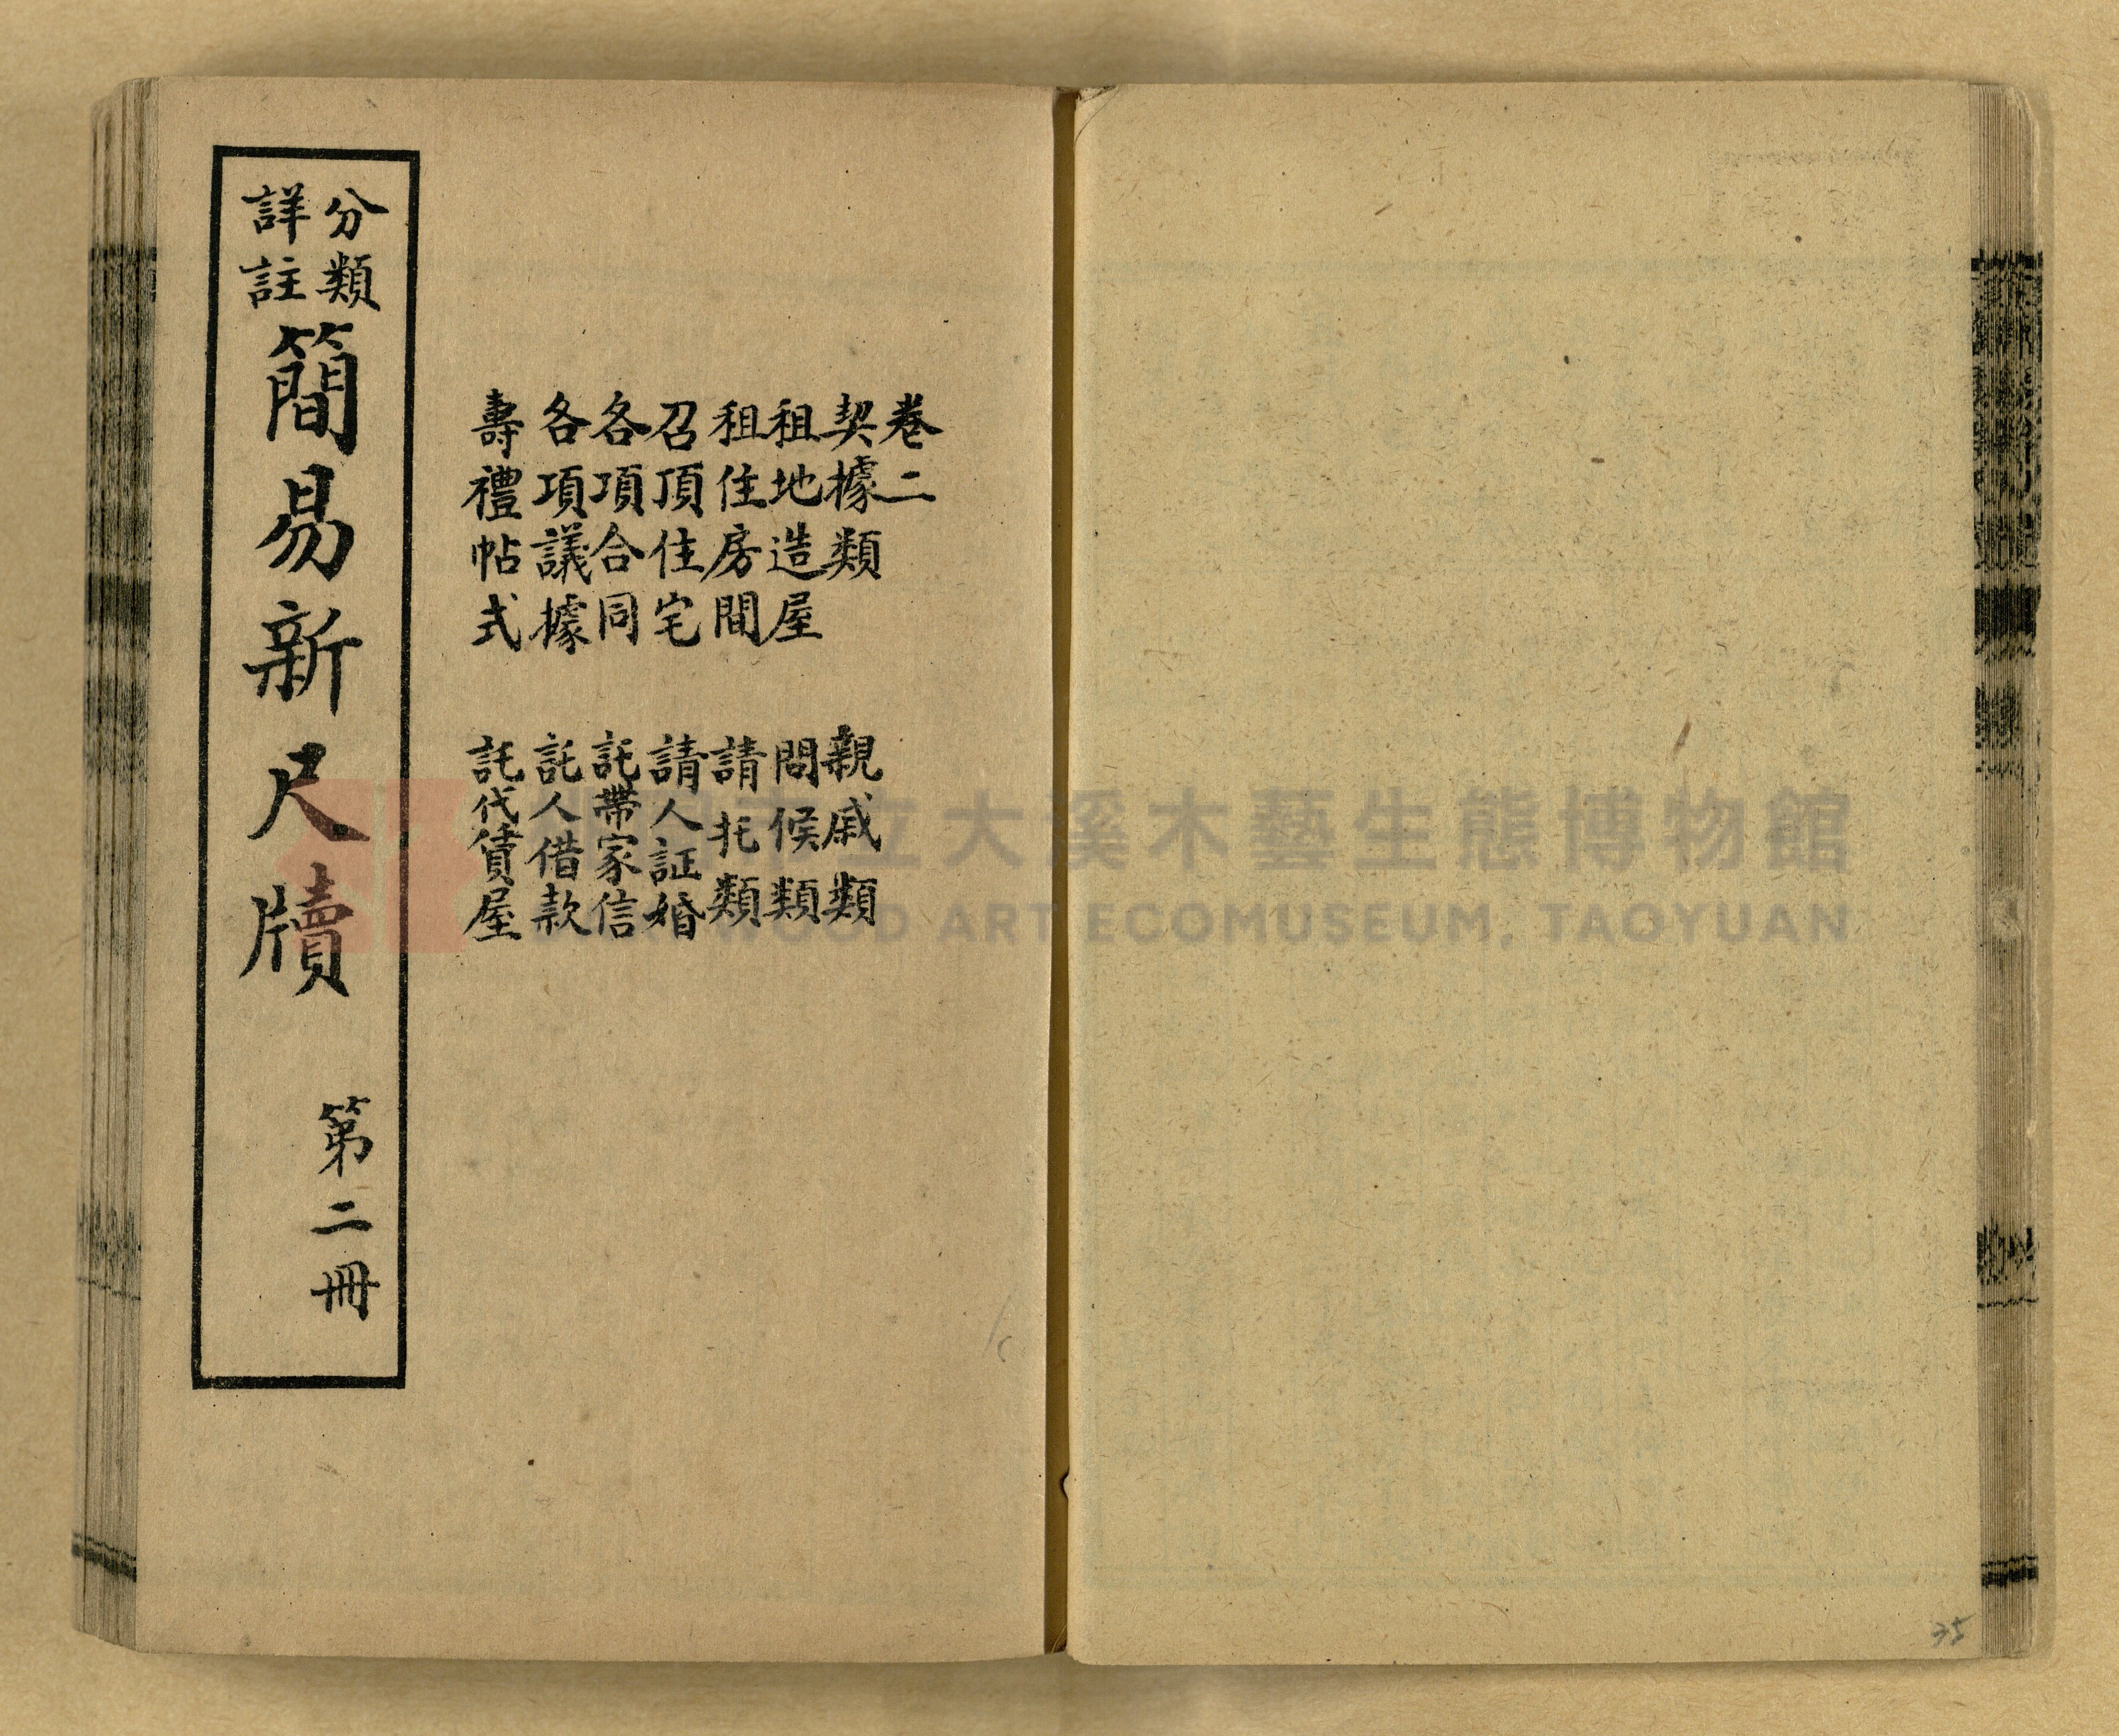 卷二
契據類
租地造屋
租住房間
召頂住宅
各項合同
各項議據
壽禮帖式
親戚類
問候類
請托類
請人証婚
託帶家信
託人借款
託代賃屋
分類
詳註
簡易新尺牘
第二冊
立大溪木藝生態博物館
WOOD ART ECOMUSEUM, TAOYUAN
35